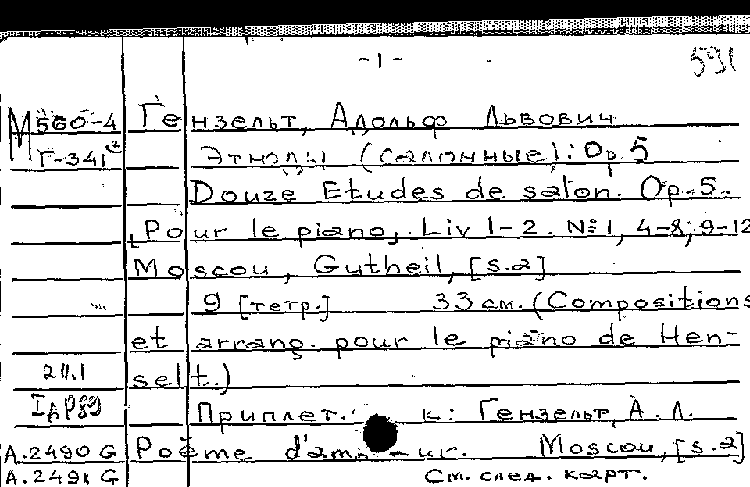 -1- 591
М560-4 Гензельт, Адольф Львович
Г-341 Этюды (салонные): Op. 5
Douze Etudes de salon. Op. 5.
Pour le piano. Liv 1-2. № 1, 4-8, 9-12
Moscou, Gutheil, [s.a]
9 [тетр.] 33 см. (Compositions
et arrang. pour le piano de Hen-
selt.)
Приплет. к: Гензельт, А. Л.
А.2490 G Poème d'amour. Moscou, [s.a]
А.2491 G См. след. карт.